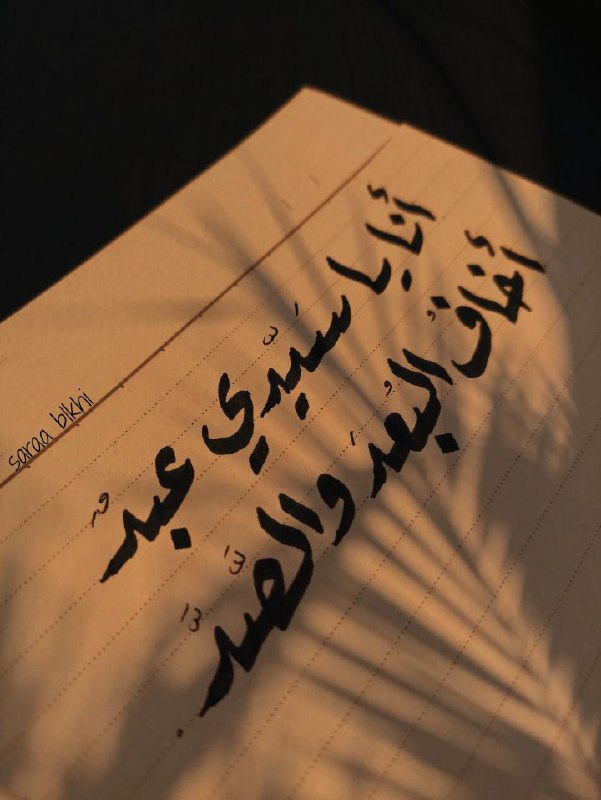 أنا يا سَيّدي عبدٌ
أخافُ البُعدَ والصَّدَّ.
saraa blkhi